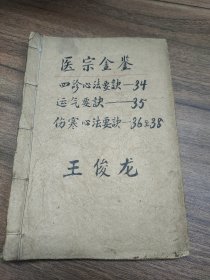 医宗金鉴
四诊心法要訣—34
运气要訣——35
伤寒心法要訣—36至38
王俊龙